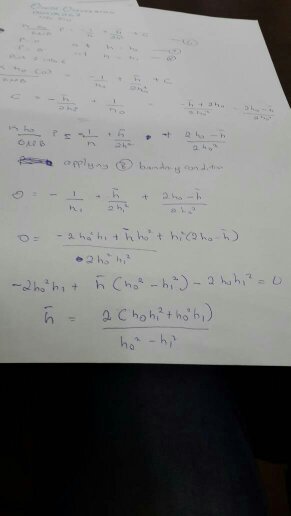 P = -1/h + h̄/2h² + C
P = 0 at h = h₀
P = 0 at h = h₁
= -1/h₀ + h̄/2h₀² + C
C = -h̄/2h₀² + 1/h₀ = -h̄ + 2h₀/2h₀² = 2h₀ - h̄/2h₀²
P = -1/h + h̄/2h² + 2h₀ - h̄/2h₀²
applying ② boundary condition
0 = -1/h₁ + h̄/2h₁² + 2h₀ - h̄/2h₀²
0 = -2h₀²h₁ + h̄h₀² + h₁²(2h₀ - h̄)/2h₀²h₁²
-2h₀²h₁ + h̄(h₀² - h₁²) - 2h₀h₁² = 0
h̄ = 2(h₀h₁² + h₀²h₁)/h₀² - h₁²